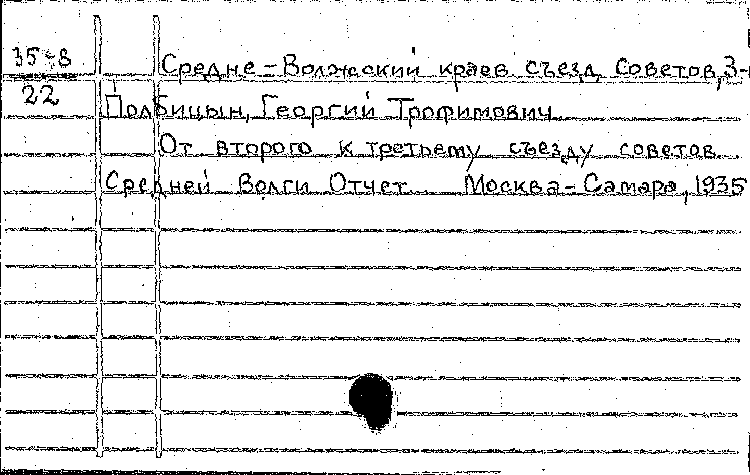 35-8
22
Средне-Волжский краев. съезд советов, 3-
Полбицын, Георгий Трофимович
От второго к третьему съезду советов
Средней Волги Отчет. Москва-Самара, 1935